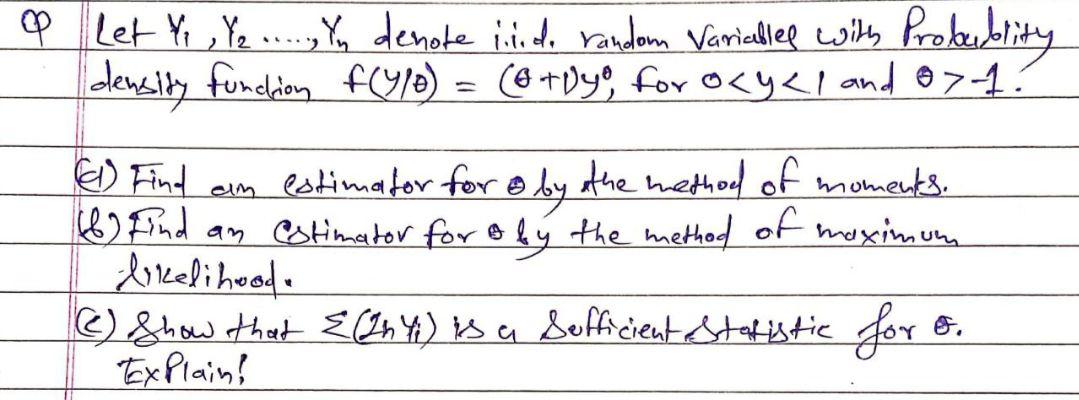 Q Let Y₁, Y₂ ....., Yₙ denote i.i.d. random Variables with Probability
density function f(y/θ) = (θ+1)y^θ, for 0<y<1 and θ>-1.
(a) Find an estimator for θ by the method of moments.
(b) Find an estimator for θ by the method of maximum
likelihood.
(c) Show that Σ(ln Yi) is a Sufficient Statistic for θ.
Explain!